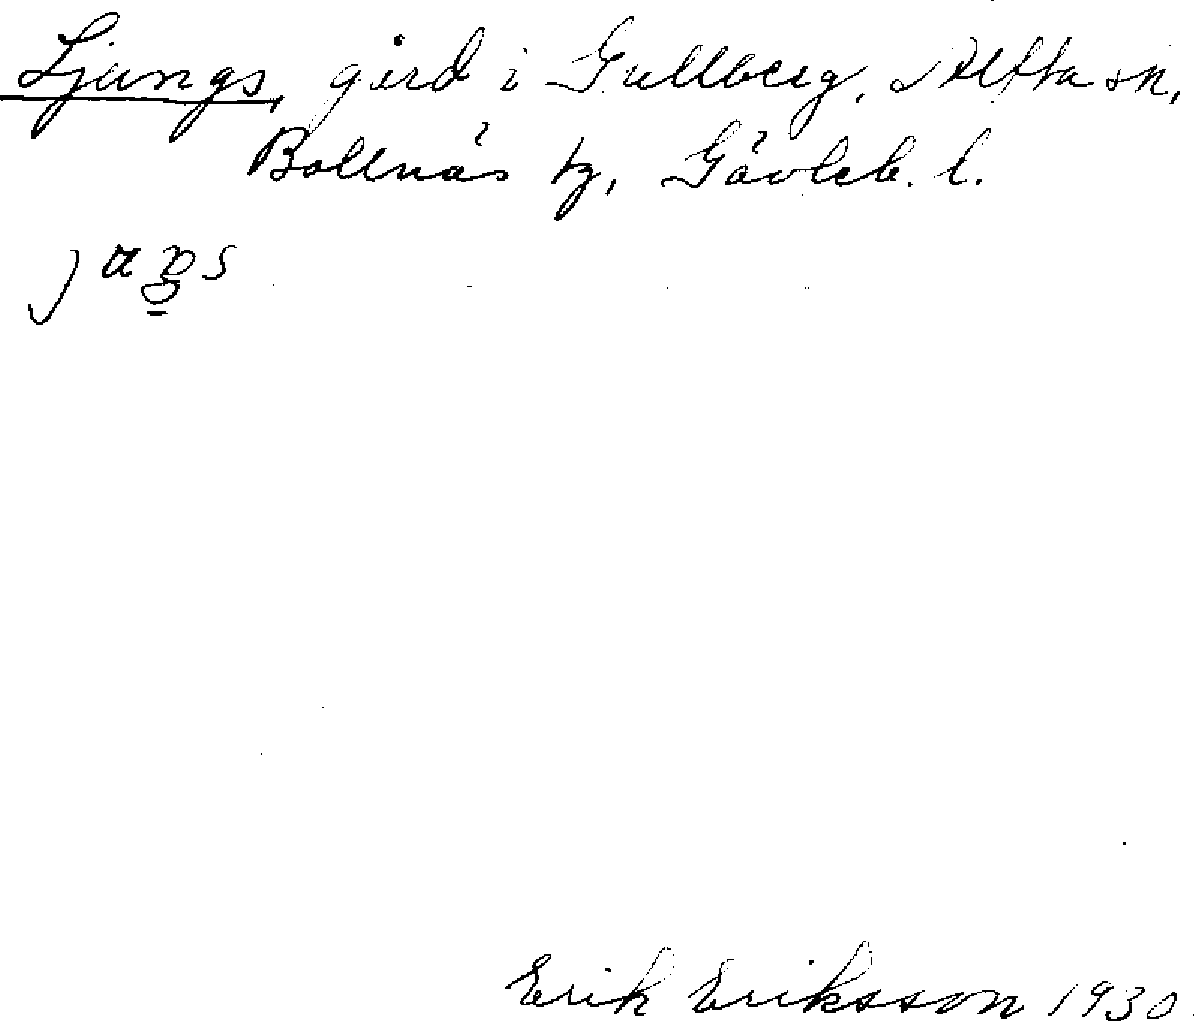 Ljungs, gård i Gullberg, Alfta sn,
Bollnäs tg, Gävleb. l.
Erik Eriksson 1930